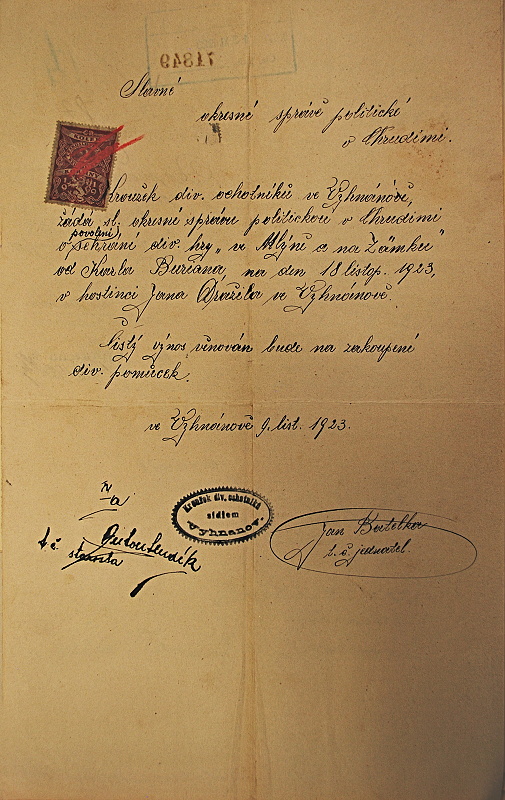 71849
Slavné
okresné správě politické
v Chrudimi.
Kroužek div. ochotníků ve Vyhnánově,
žádá sl. okresní správu politickou v Chrudimi
povolení
o sehrání div. hry „ve Mlýně a na Zámku"
od Karla Buriana, na den 18 listop. 1923,
v hostinci Jana Dražila ve Vyhnánově.
Čistý výnos věnován bude na zakoupení
div. pomůcek.
ve Vyhnánově 9. list. 1923.
Kroužek div. ochotníků
sídlem
Vyhnanov.
t. č. starosta
Jan Bartelka
t. č. jednatel.